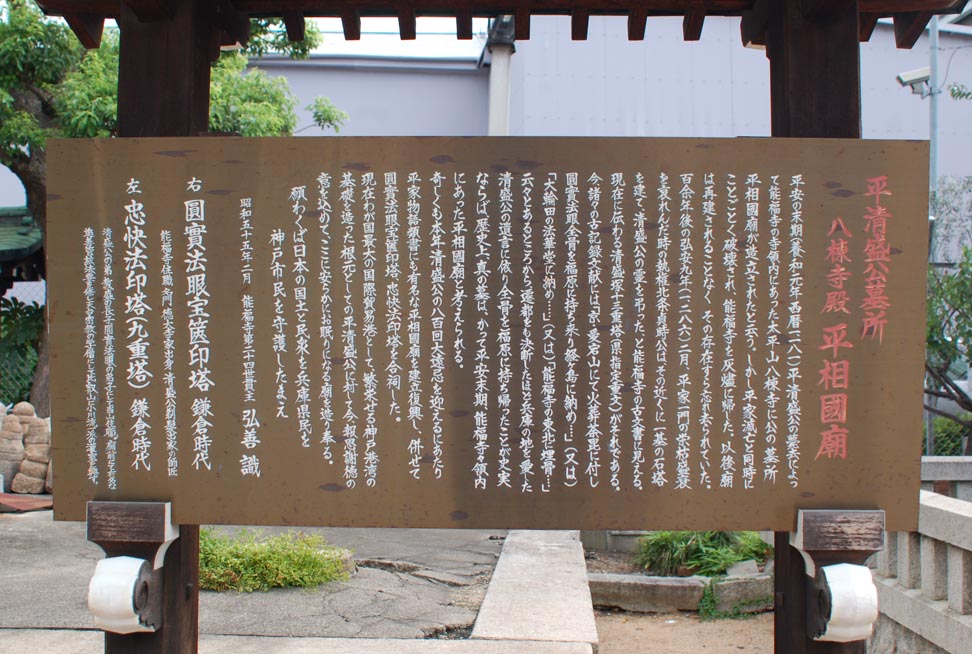 平清盛公墓所
八棟寺殿 平相國廟
平安の末期(養和元年西暦一一八一)平清盛公の薨去によっ
て能福寺の寺領内にあった太平山八棟寺に公の墓所
平相國廟が造立されたと云う。しかし平家滅亡と同時に
ことごとく破壊され、能福寺も灰燼に帰した。以後、廟
は再建されることなく、その存在すら忘れ去られていた。
百余年後の弘安九年(一二八六)二月、平家一門の栄枯盛衰
を哀れんだ時の執権北条貞時公は、その近くに一基の石塔
を建て、清盛公の霊を弔った、と能福寺の古文書に見える。
現在に伝わる清盛塚十三重塔(県指定重文)がこれである。
今諸々の古記録、文献には「京、愛宕山にて火葬荼毘に付し
圓實法眼全骨を福原に持ち来り経ヶ島に納める…」(又は)
「大輪田の法華堂に納め…」(又は)「能福寺の東北に埋骨…」
云々とあるところから遷都をも決断したほど兵庫の地を愛した
清盛公の遺言に依り全骨を福原に持ち帰ったことが史実
ならば、歴史上、真の墓は、かつて平安末期、能福寺の領内
にあった平相國廟と考えられる。
奇しくも本年清盛公の八百回大遠忌を迎えるにあたり
平家物語類書にも有名な平相國廟を現位置に復興し、併せて
圓實法眼宝篋印塔、忠快法印塔を合祠した。
現在わが国最大の国際貿易港として、繁栄せる神戸港湾の
基礎を造った根元としての平清盛公に対して今、報恩謝徳の
意を込めて、ここに安らかにお眠りになる廟を造り奉る。
願わくば日本の国土と民衆と、兵庫県民を
神戸市民を守護したまえ
昭和五十五年二月 能福寺第二十四世貫主 弘善 識
右 圓實法眼宝篋印塔 鎌倉時代
能福寺住職
左 忠快法印塔(九重塔) 鎌倉時代